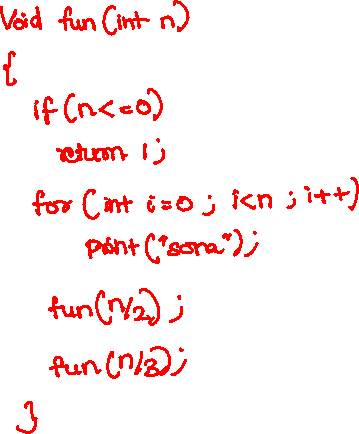 Void fun(int n)
{
if(n<=0)
return 1;
for(int i=0; i<n; i++)
print("sona");
fun(n/2);
fun(n/3);
}